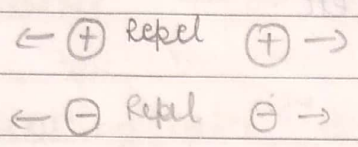 ← ⊕ Repel ⊕ →
← ⊖ Repel ⊖ →